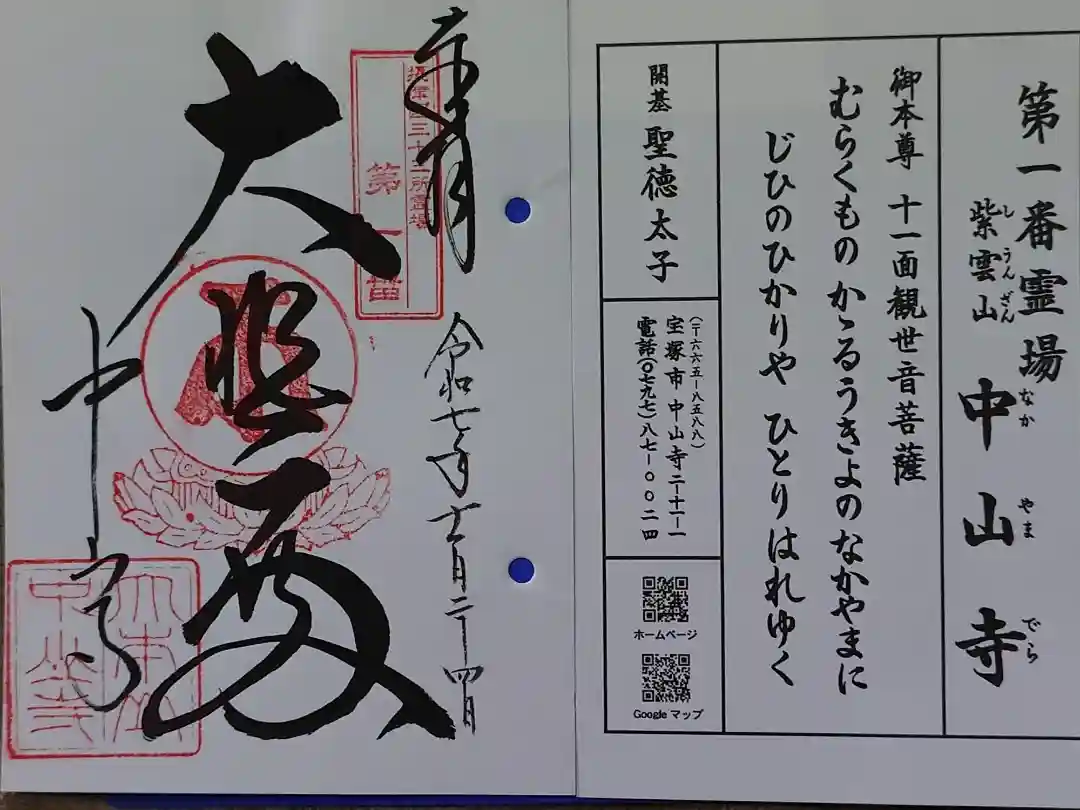 第一番霊場
紫雲山 中山寺
しうんざん なかやまでら
御本尊 十一面観世音菩薩
むらくものかゝるうきよのなかやまに
じひのひかりや ひとりはれゆく
開基 聖徳太子
(〒六六五-八五八八)
宝塚市中山寺二-十一-一
電話(〇七九七)八七-〇〇二四
ホームページ
Google マップ
奉拝
令和七年十一月二十四日
第一番
大悲殿
中山寺